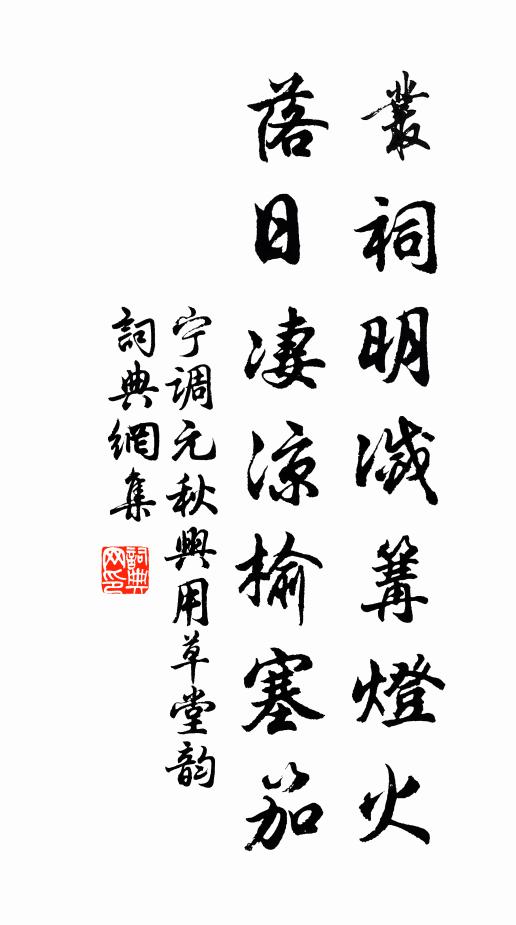 叢祠明滅篝燈火
落日凄涼榆塞笳
宁調元秋興用草堂韵
詞典網集
詞典网印